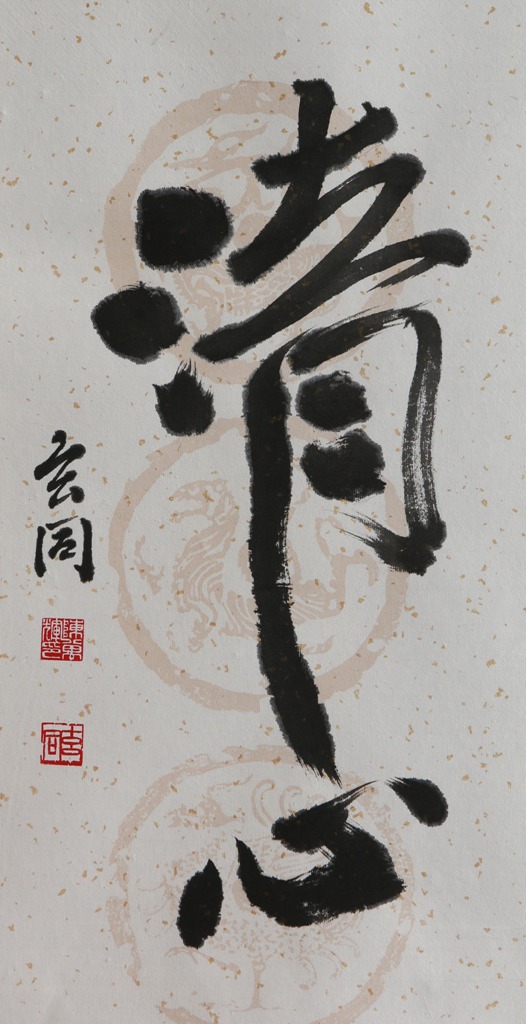 清心
玄同